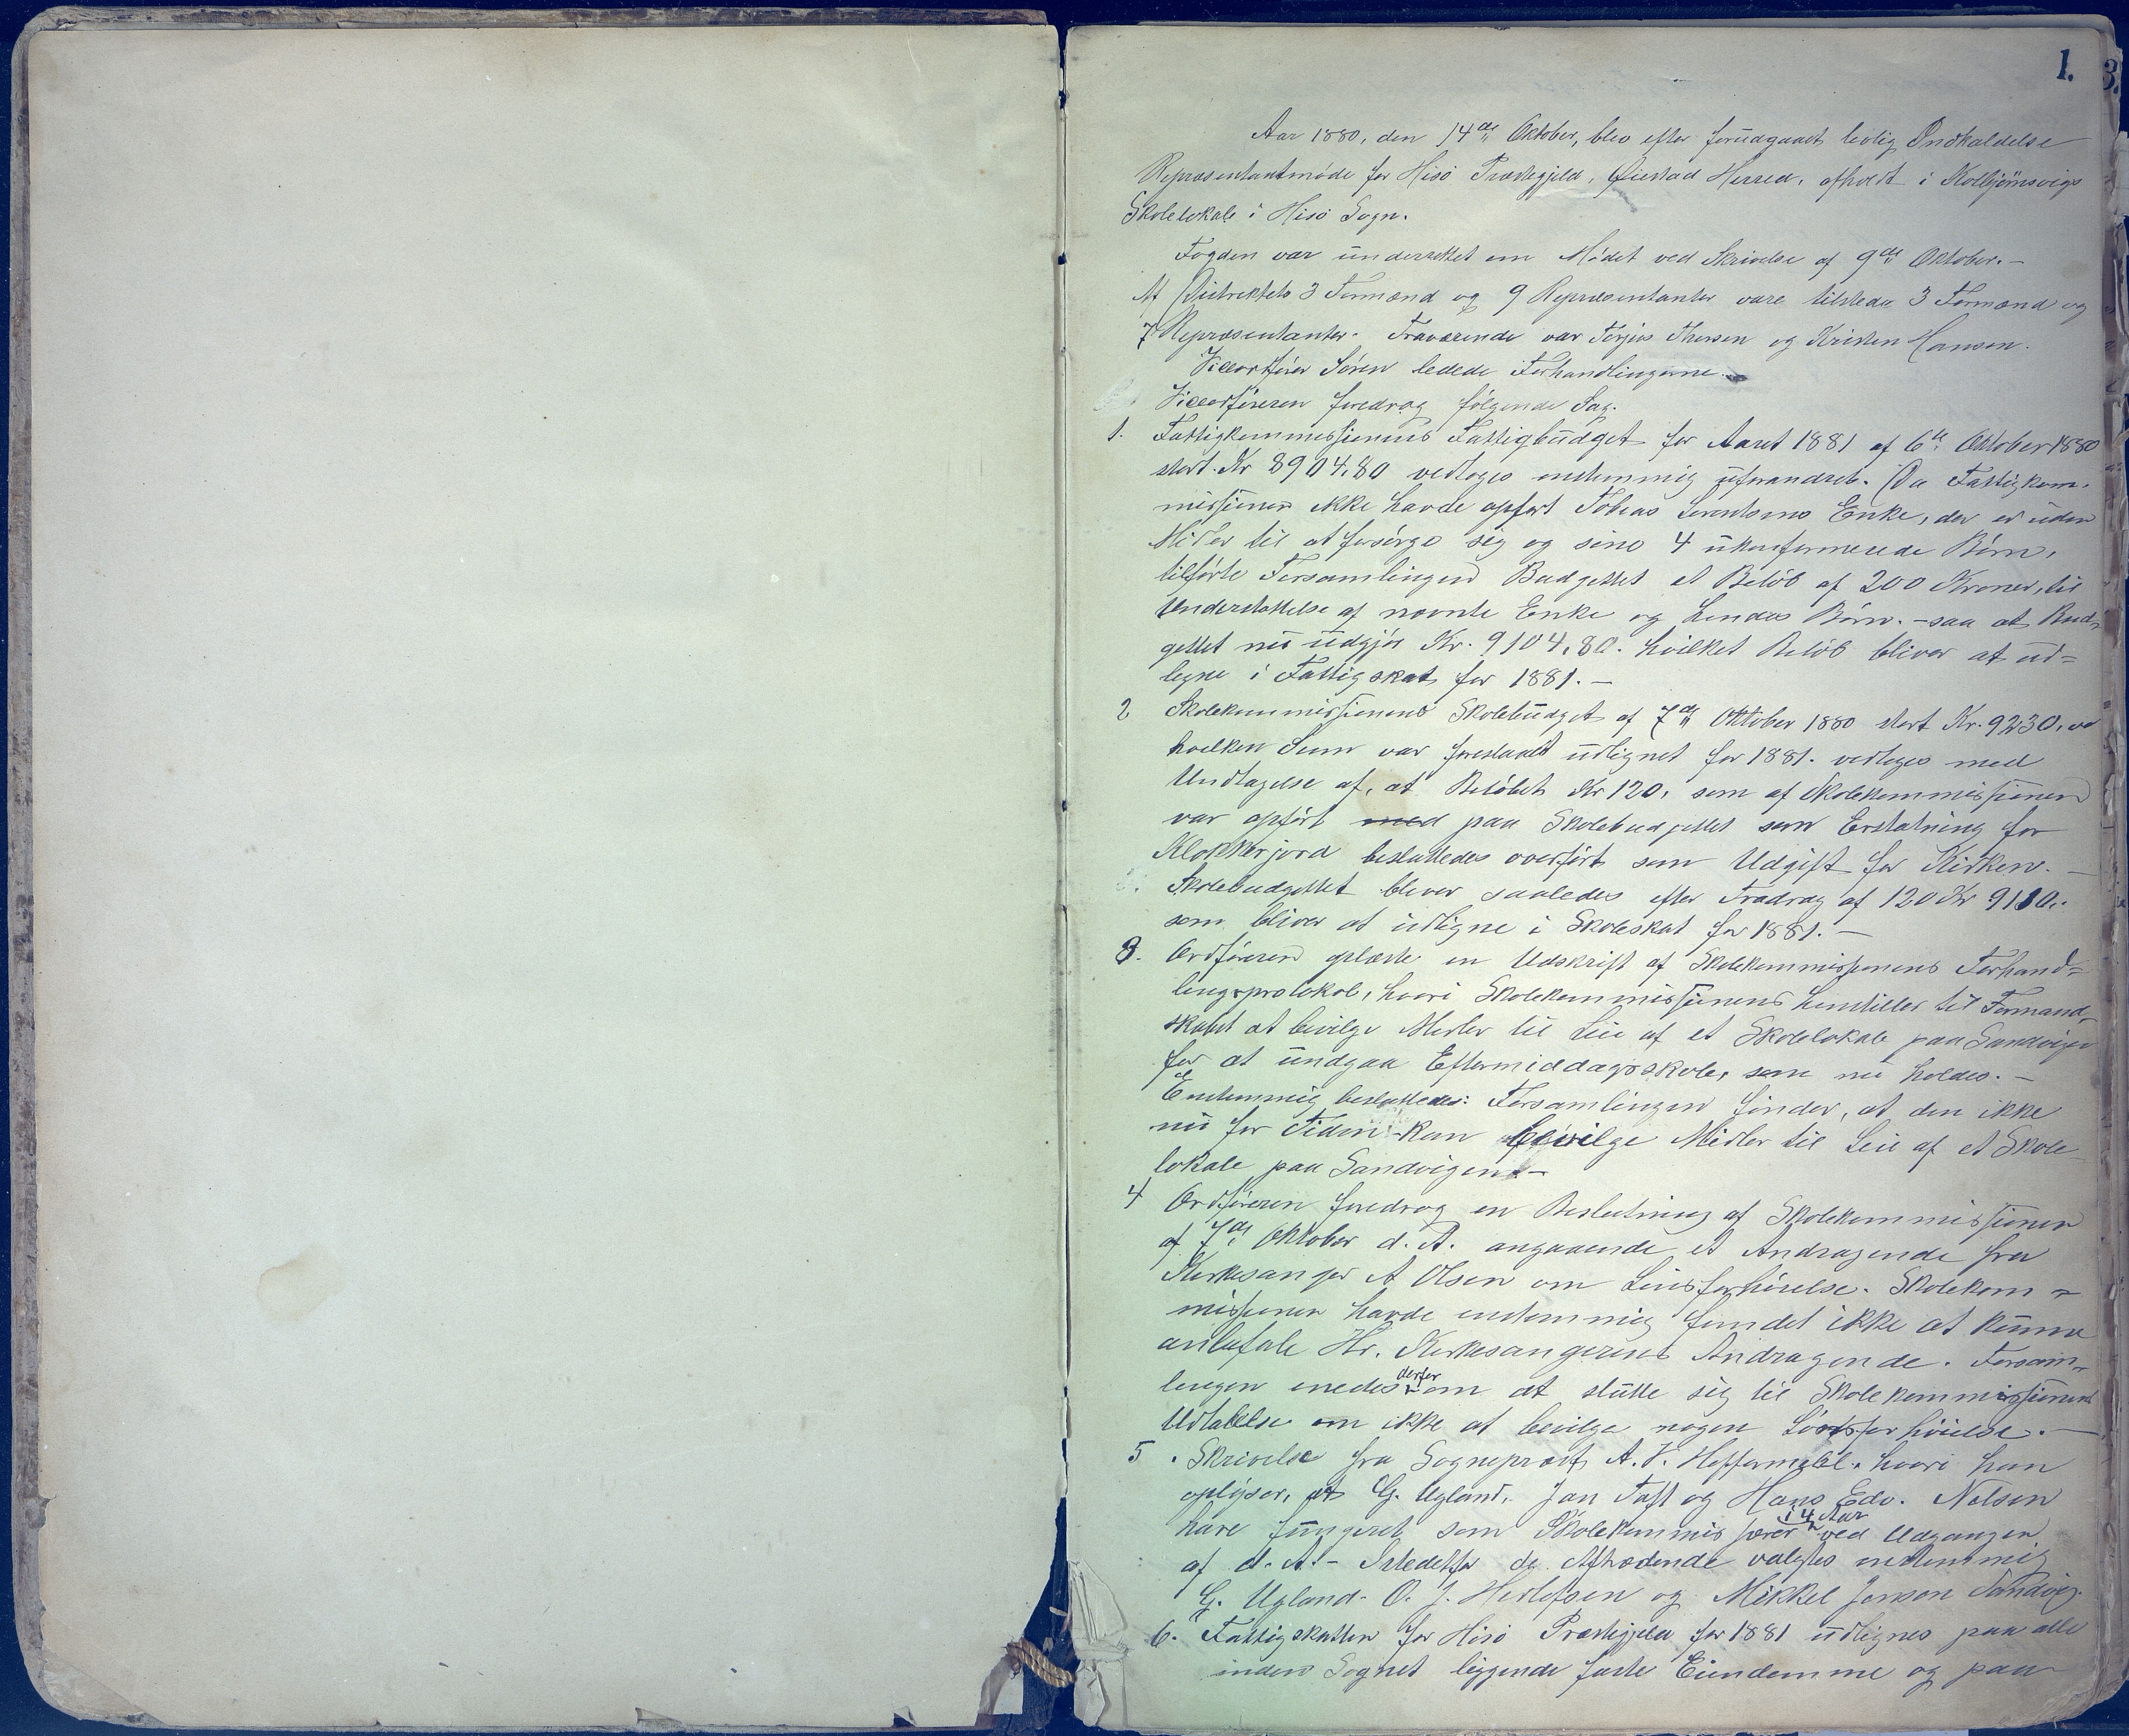 1.
3.
Aar 1880, den 14de Oktober, blev efter forudgaaet lovlig Indkaldelse
Repræsentantmøde for Hisö Præstegjeld, Øiestad Herred, afholdt i Kolbjörnsvigs
Skolelokale i Hisö Sogn.
Fogden var underrettet om Mödet ved Skrivelse af 9de Oktober. –
Af Distriktets 3 Formænd og 9 Repræsentanter vare tilstede 3 Formænd og
7 Repræsentanter. Fraværende var Terjus Thorsen og Kristen Hansen.
Viceordförer Sören ledede Forhandlingerne.
Viceordföreren foredrog fölgende Sag.
1. Fattigkommissionens Fattigbudget for Aaret 1881 af 6te Oktober 1880
stort Kr 8904,80 vedtoges enstemmig uforandret. Da Fattigkom-
missionen ikke havde opfört Tobias Lorentsens Enke, der er uden
Midler til at forsörge sig og sine 4 ukonfirmerede Börn,
tilförte Forsamlingen Budgettet et Belöb af 200 Kroner, til
Understöttelse af nævnte Enke og hendes Börn. – saa at Bud-
gettet nu udgjör Kr. 9104,80. hvilket Belöb bliver at ud=
ligne i Fattigskat for 1881. –
2 Skolekommissionens Skolebudget af 7de Oktober 1880 stort Kr. 9230,
hvilken Sum var foreslaaet udlignet for 1881. vedtoges med
Undtagelse af, at Belöbet Kr 120, som af Skolekommissionen
var opfört med paa Skolebudgettet som Erstatning for
Klokkerjord besluttedes overfört som Udgift for Kirken. –
Skolebudgettet bliver saaledes efter Fradrag af 120 Kr 9110,-
som bliver at udligne i Skoleskat for 1881. –
3. Ordföreren oplæste en Udskrift af Skolekommissionens Forhand=
lingsprotokol, hvori Skolekommissionens henstiller til Formand-
skabet at bevilge Midler til Leie af et Skolelokale paa Sandvigen
for at undgaa Eftermiddagsskole, som nu holdes. –
Enstemmig besluttedes: Forsamlingen finder, at den ikke
nu for Tiden kan bevilge Midler til Leie af et Skole
lokale paa Sandvigen. –
4 Ordföreren foredrog en Beslutning af Skolekommissionen
af 7de Oktober d. A. angaaende et Andragende fra
Kirkesanger A Olsen om Lönsforhöielse. Skolekom=
missionen havde enstemmig fundet ikke at kunne
anbefale Hr. Kirkesangerens Andragende. Forsam-
lingen enedes derfor om at slutte sig til Skolekommissionens
Udtalelse om ikke at bevilge nogen Lönsforhöielse. –
5. Skrivelse fra Sognepræst A. V. hvori han
oplyser, at G. Ugland, Jan Taft og Hans Edv. Nelsen
have fungeret som Skolekommissærer i 4 Aar ved Udgangen
af d. A. – Istedetfor de Aftrædende valgtes enstemmig
G. Ugland. O. J. Herlofsen og Mikkel Jensen Sandvig.
6. Fattigskatten for Hisö Præstegjeld for 1881 udlignes paa alle
inden Sognet liggende faste Eiendomme og paa